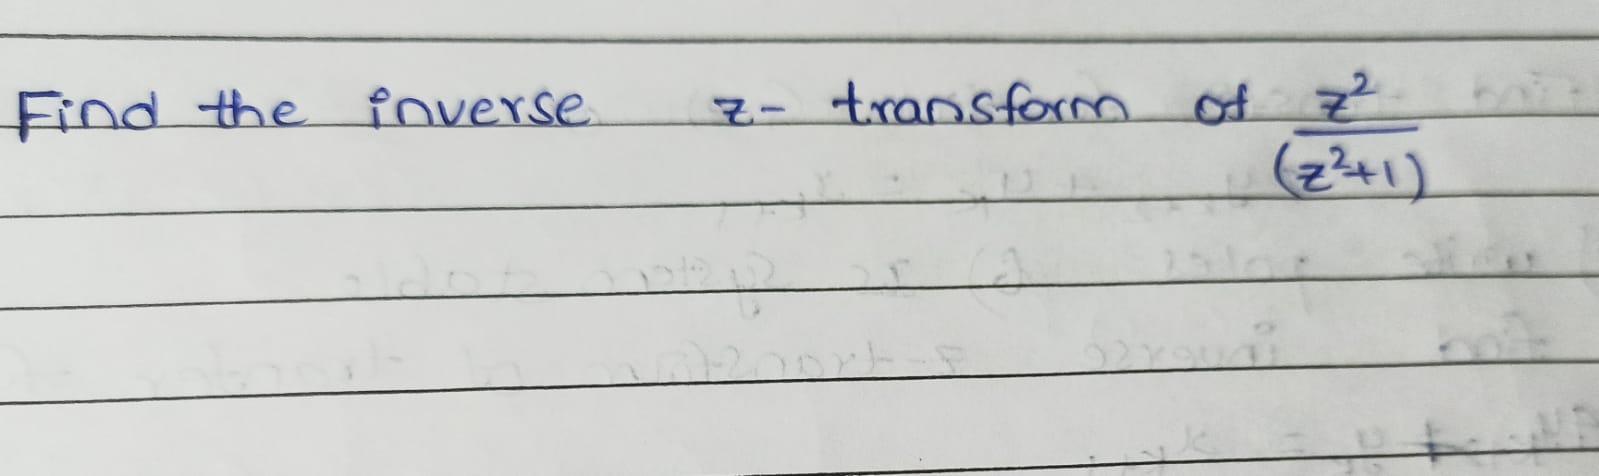 Find the inverse z- transform of z²
(z²+1)